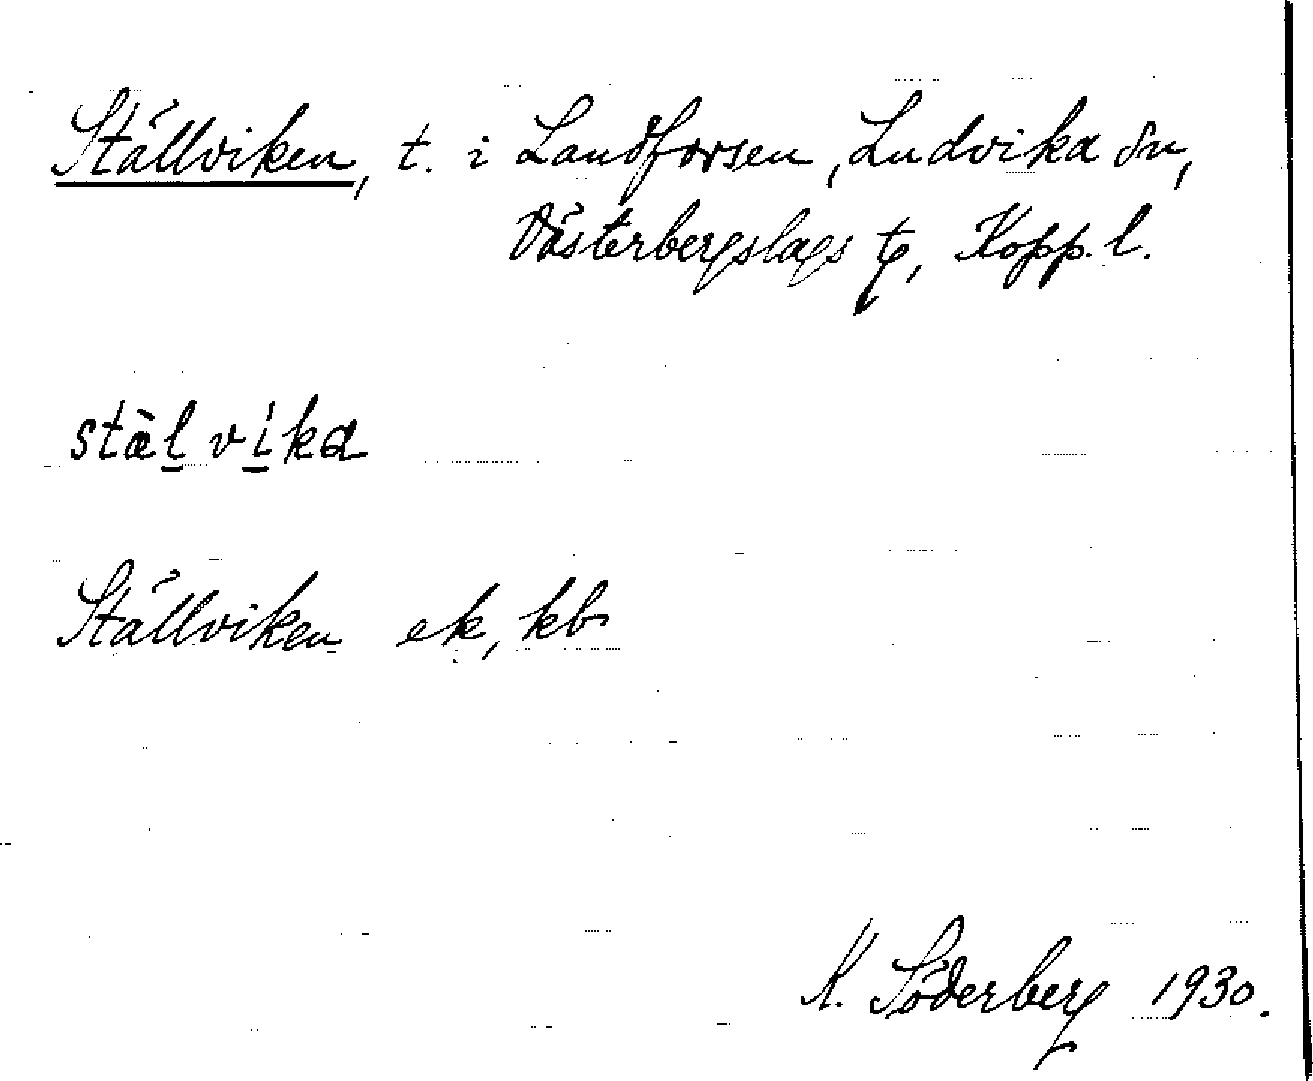 Ställviken, t. i Landforsen, Ludvika sn,
Västerbergslags tg, Kopp. l.
stæ̀l̠ vi̠ka
Ställviken ek, kb
K. Söderberg 1930.